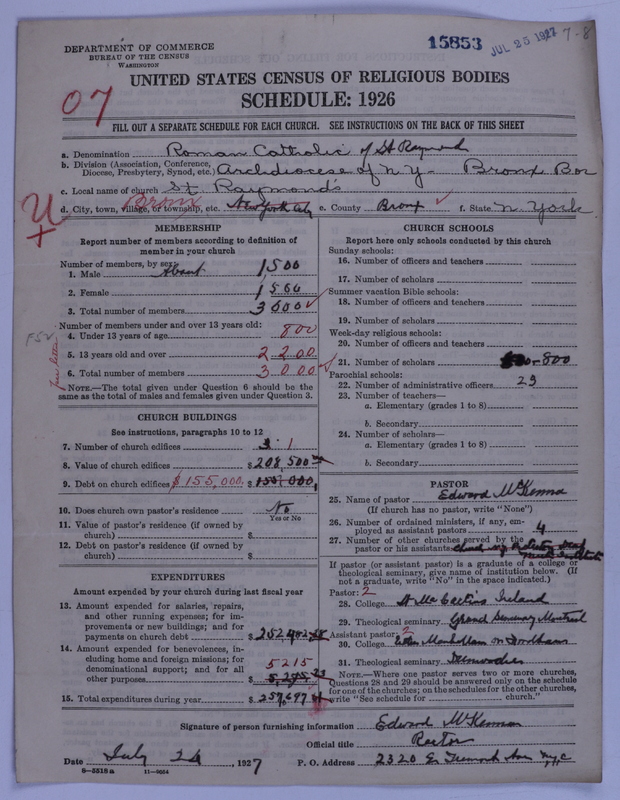 DEPARTMENT OF COMMERCE
BUREAU OF THE CENSUS
WASHINGTON
15853
JUL 25 1927
7-8
UNITED STATES CENSUS OF RELIGIOUS BODIES
SCHEDULE: 1926
07
FILL OUT A SEPARATE SCHEDULE FOR EACH CHURCH. SEE INSTRUCTIONS ON THE BACK OF THIS SHEET
a. Denomination Roman Catholic of St Raymond
b. Division (Association, Conference, Diocese, Presbytery, Synod, etc.) Archdiocese of N.Y. Bronx Bor
c. Local name of church St Raymonds
d. City, town, village, or township, etc. Bronx New York City e. County Bronx ✓ f. State N. York
U
+
MEMBERSHIP
Report number of members according to definition of
member in your church
Number of members, by sex:
1. Male About 1,500
2. Female 1,500
3. Total number of members 3000 ✓
Number of members under and over 13 years old:
4. Under 13 years of age 800
5. 13 years old and over 2200
6. Total number of members 3000 ✓
per letter
NOTE.—The total given under Question 6 should be the
same as the total of males and females given under Question 3.
CHURCH BUILDINGS
See instructions, paragraphs 10 to 12
7. Number of church edifices 3 1
8. Value of church edifices $208,500
9. Debt on church edifices $155,000. $155,000,
10. Does church own pastor's residence No
Yes or No
11. Value of pastor's residence (if owned by
church) $
12. Debt on pastor's residence (if owned by
church) $
EXPENDITURES
Amount expended by church during last fiscal year
13. Amount expended for salaries, repairs,
and other running expenses; for im-
provements or new buildings; and for
payments on church debt $252,482
14. Amount expended for benevolences, in-
cluding home and foreign missions; for
denominational support; and for all
other purposes 5215 $
15. Total expenditures during year $257,697
CHURCH SCHOOLS
Report here only schools conducted by this church
Sunday schools:
16. Number of officers and teachers
17. Number of scholars
Summer vacation Bible schools:
18. Number of officers and teachers
19. Number of scholars
Week-day religious schools:
20. Number of officers and teachers
21. Number of scholars 800
Parochial schools:
22. Number of administrative officers 23
23. Number of teachers—
a. Elementary (grades 1 to 8)
b. Secondary
24. Number of scholars—
a. Elementary (grades 1 to 8)
b. Secondary
PASTOR
25. Name of pastor Edward McKenna
(If church has no pastor, write "None")
26. Number of ordained ministers, if any, em-
ployed as assistant pastors 4
27. Number of other churches served by the
pastor or his assistants
If pastor (or assistant pastor) is a graduate of a college or
theological seminary, give name of institution below. (If
not a graduate, write "No" in the space indicated.)
Pastor: 2
28. College Ireland
29. Theological seminary Grand Seminary Montreal
Assistant pastor: 2
30. College Manhattan or Fordham
31. Theological seminary Dunwoodie
NOTE.—Where one pastor serves two or more churches,
Questions 28 and 29 should be answered only on the schedule
for one of the churches; on the schedules for the other churches,
write "See schedule for church."
Signature of person furnishing information Edward McKenna
Official title Rector
Date July 24, 1927 P. O. Address 2320 E. Tremont Ave N.Y.C
8—5518a 11—9654